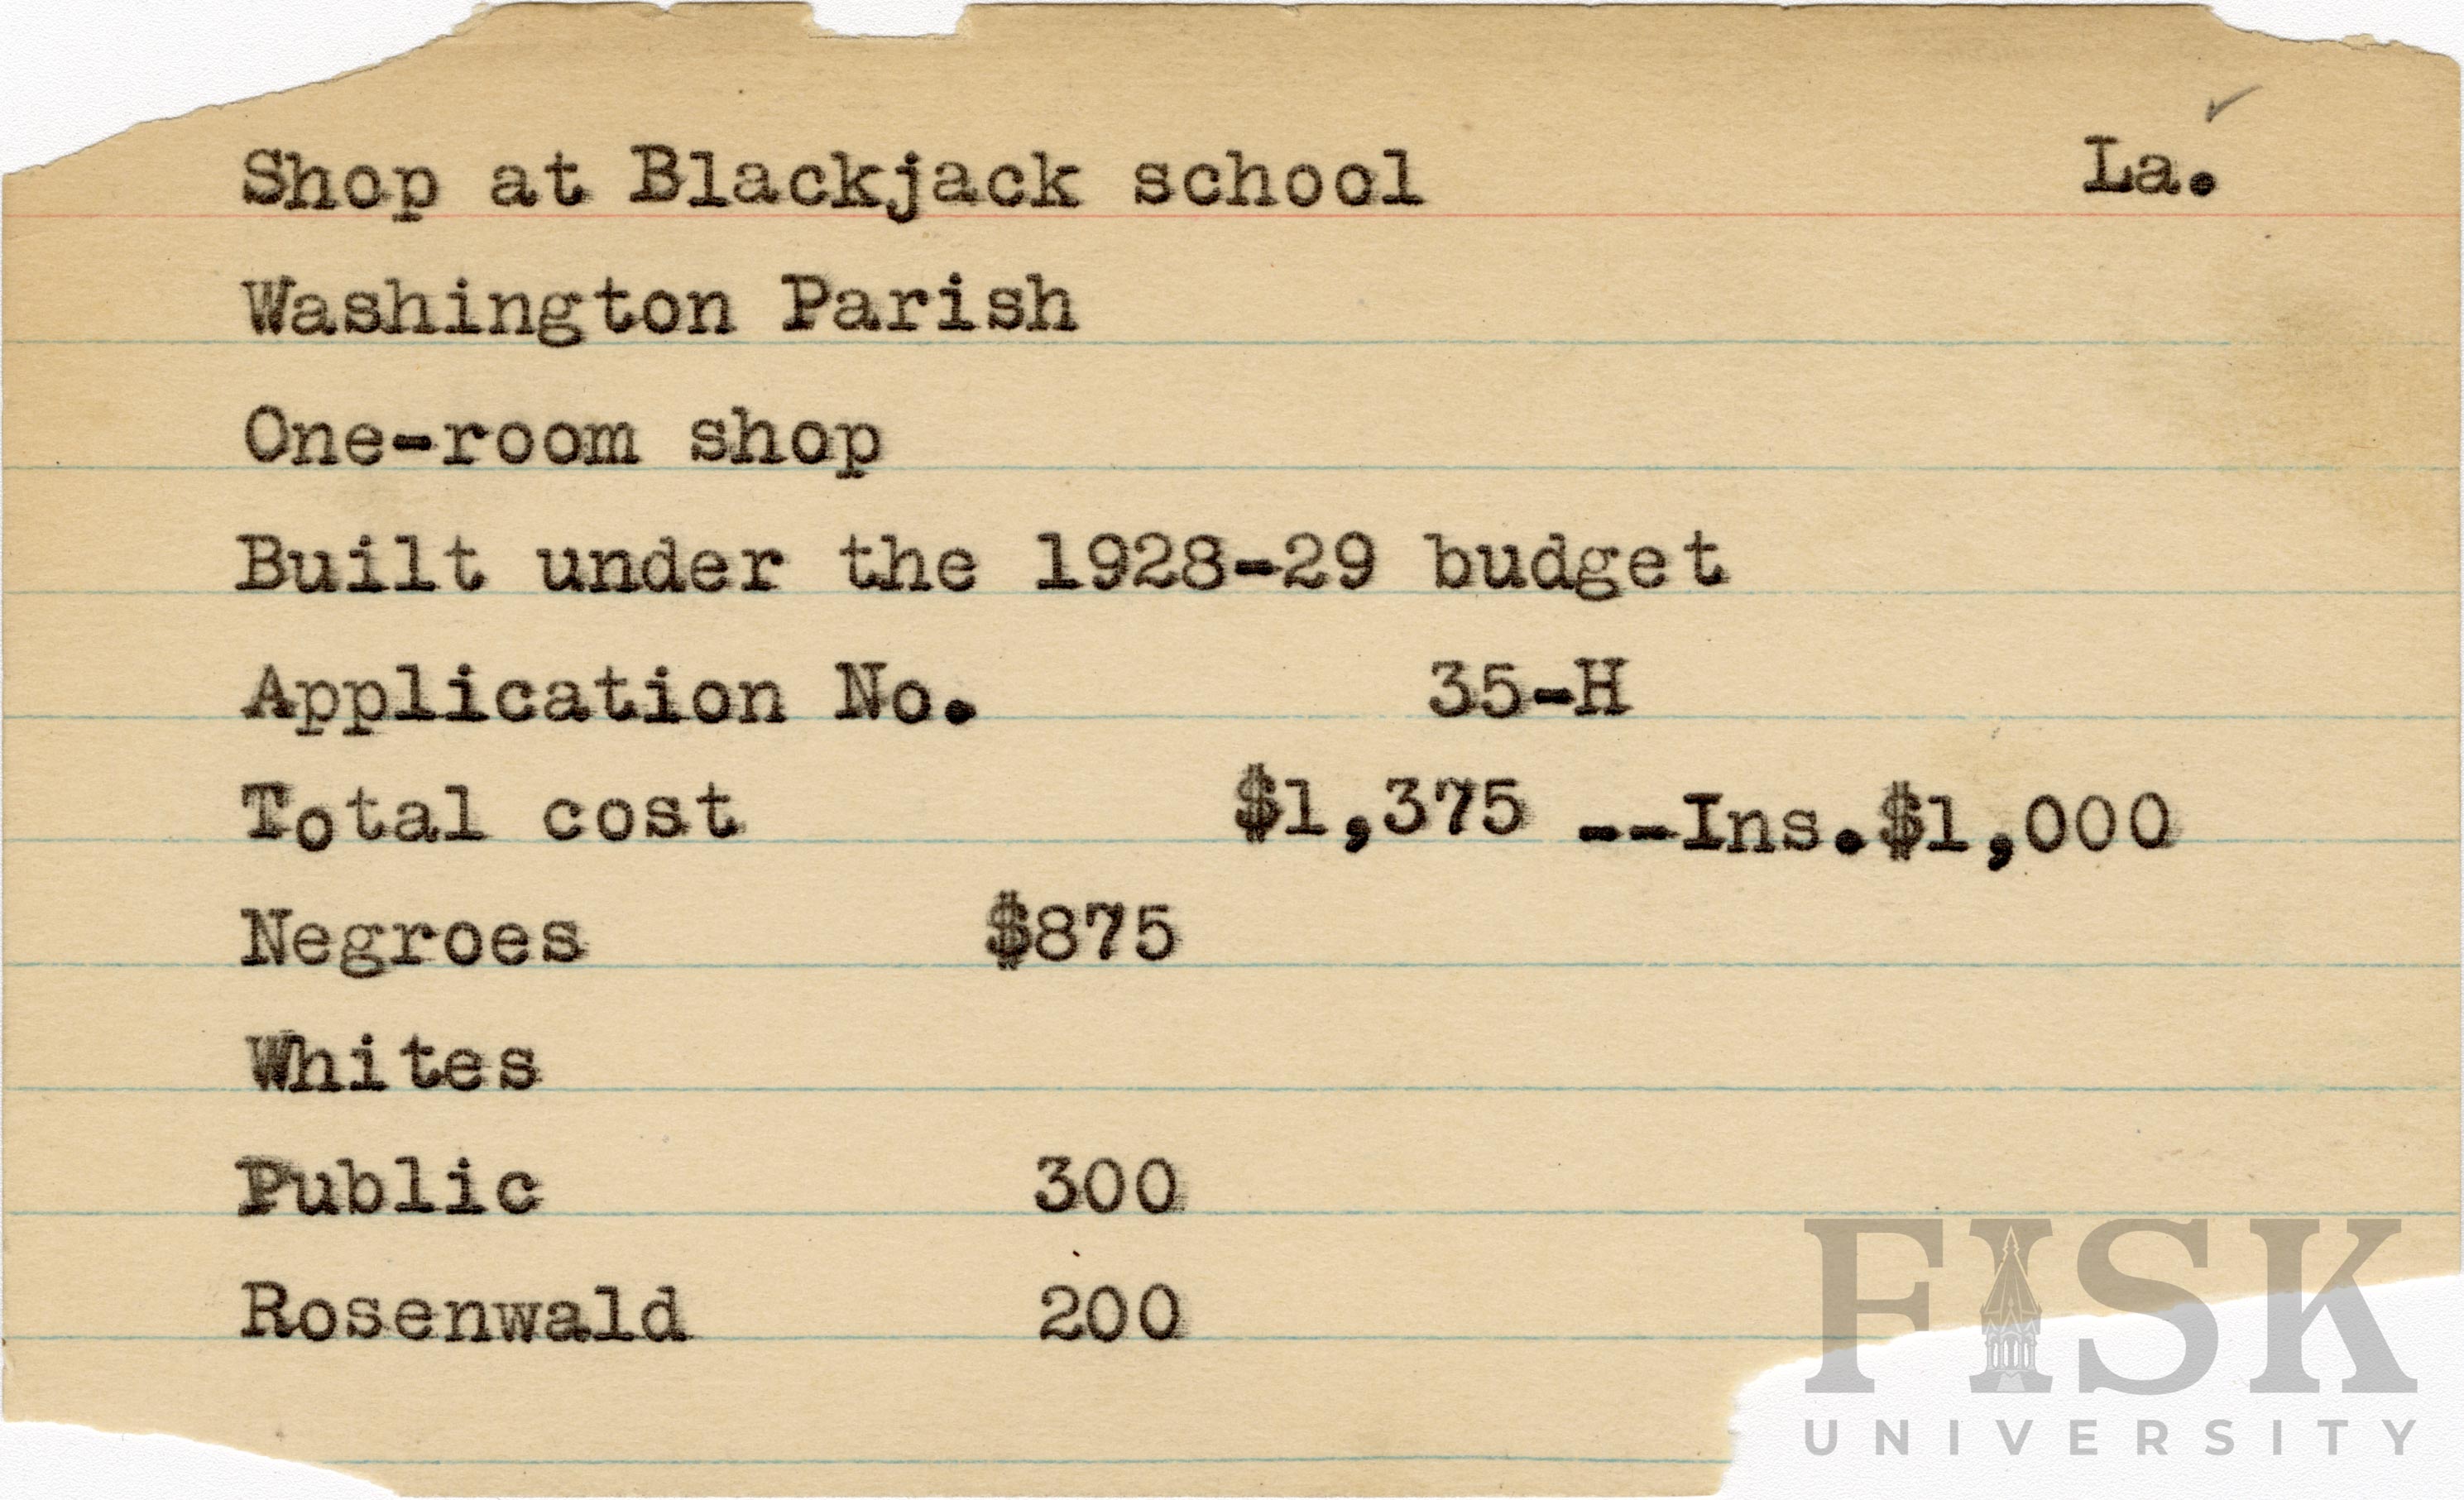 Shop at Blackjack school La.
Washington Parish
One-room shop
Built under the 1928-29 budget
Application No. 35-H
Total cost $1,375 --Ins.$1,000
Negroes $875
Whites
Public 300
Rosenwald 200
FISK
UNIVERSITY